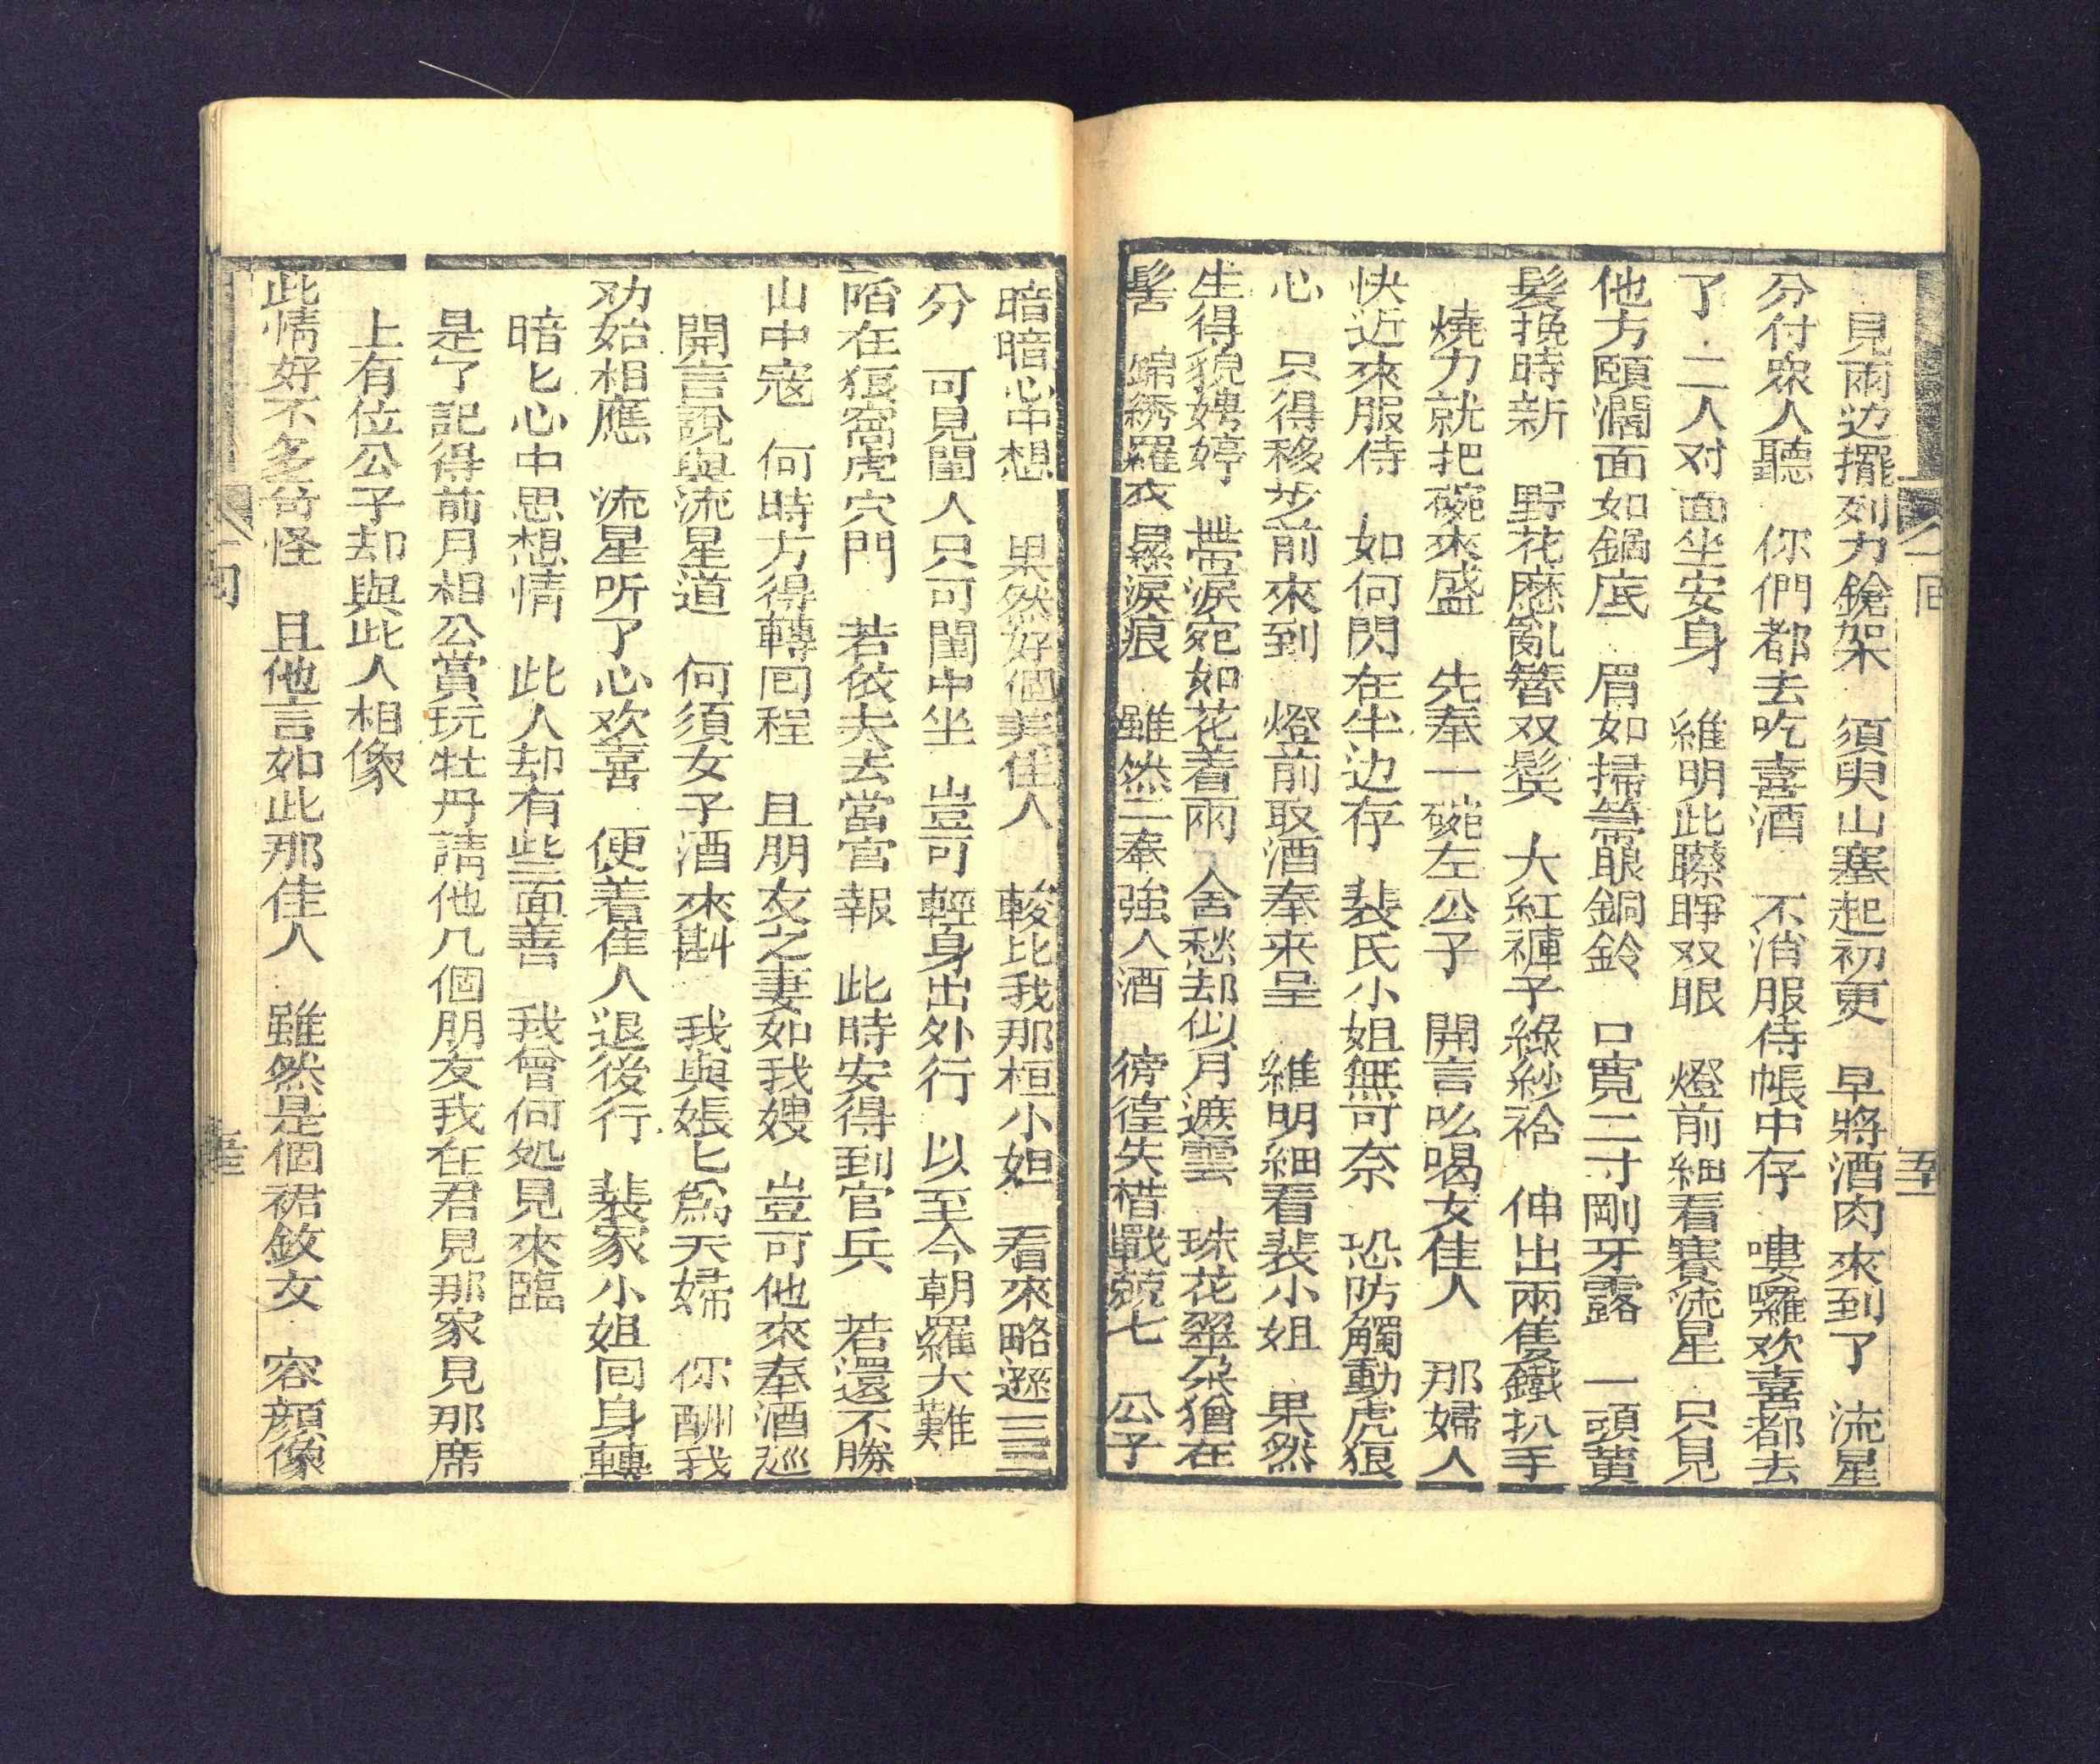 見兩边擺列刀鎗架　須臾山塞起初更　早將酒肉來到了　流星
分付眾人聽　你們都去吃喜酒　不消服侍帳中存　嘍囉欢喜都去
了　二人对面坐安身　維明此際睜双眼　燈前細看賽流星　只見
他方頤濶面如鍋底　眉如掃箒眼銅鈴　口寬二寸剛牙露　一頭黄
髮挽時新　野花歷亂簪双鬓　大紅褲子綠紗袷　伸出兩隻鐵扒手
燒刀就把碗來盛　先奉一碗左公子　開言吆喝女佳人　那婦人
快近來服侍　如何閃在半边存　裴氏小姐無可奈　恐防觸動虎狠
心　只得移步前來到　燈前取酒奉来呈　維明細看裴小姐　果然
生得貌娉婷　帶淚宛如花着雨　含愁却似月遮雲　珠花翠朶猶在
髻　錦綉羅衣暴淚痕　雖然二奉強人酒　徬徨失措戰兢七　公子
暗暗心中想　果然好個美佳人　較比我那桓小姐　看來略遜二三
分　可見閨人只可閨中坐　豈可輕身出外行　以至今朝羅大難
陷在狼窩虎穴門　若依夫去當官報　此時安得到官兵　若還不勝
山中寇　何時方得轉囘程　且朋友之妻如我嫂　豈可他來奉酒廵
開言說與流星道　何須女子酒來斟　我與娠匕爲夭婦　你酬我
劝始相應　流星听了心欢喜　便着佳人退後行　裴家小姐囘身轉
暗匕心中思想情　此人却有些面善　我曾何処見來臨
是了記得前月相公賞玩牡丹請他几個朋友我在君見那家見那席
上有位公子却與此人相像
此情好不多竒怪　且他言如此那佳人　雖然是個裙釵女　容顔像